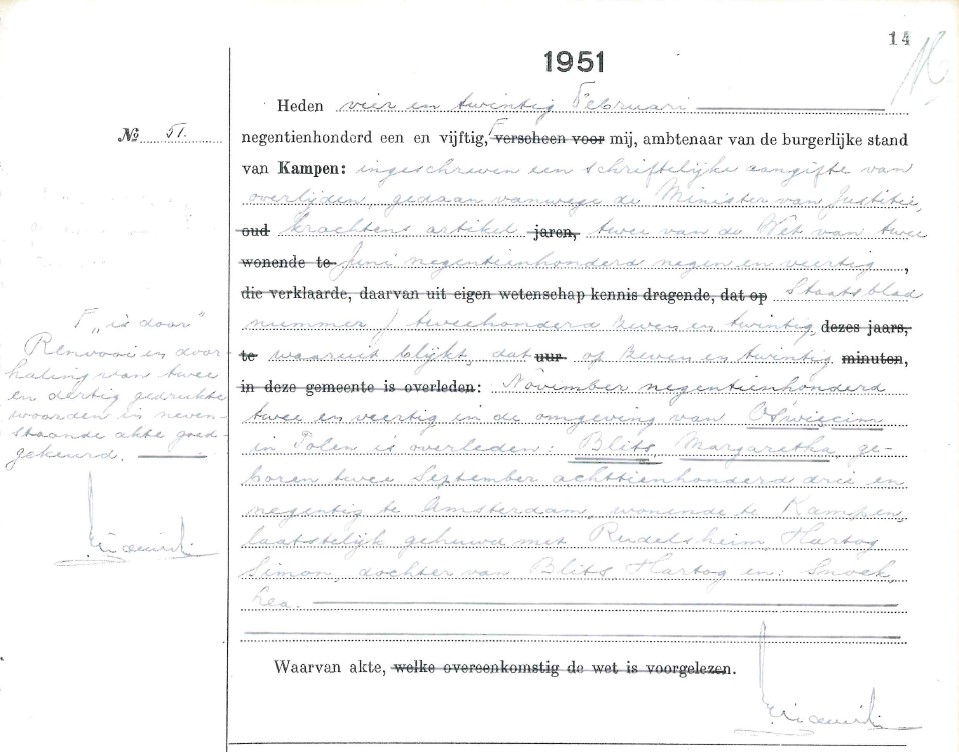 14
1951
Heden vier en twintig Februari
№ 51.
negentienhonderd een en vijftig, Γ verscheen voor mij, ambtenaar van de burgerlijke stand
van Kampen: ingeschreven een schriftelijke aangifte van
overlijden, gedaan vanwege de Minister van Justitie,
oud krachtens artikel jaren, twee van de Wet van twee
wonende te Juni negentienhonderd negen en veertig,
die verklaarde, daarvan uit eigen wetenschap kennis dragende, dat op Staatsblad
nummer / tweehonderd zeven en twintig, dezes jaars,
te waaruit blijkt, dat uur op zeven en twintig minuten,
in deze gemeente is overleden: November negentienhonderd
twee en veertig in de omgeving van Oświęcim
in Polen is overleden: Blits, Margaretha, ge-
boren twee September achttienhonderd drie en
negentig te Amsterdam, wonende te Kampen,
laatstelijk gehuwd met Rudelsheim, Hartog
Simon, dochter van Blits, Hartog en: Snoek,
Lea.
Waarvan akte, welke overeenkomstig de wet is voorgelezen.
Γ „is door"
Renvooi en door-
haling van twee
en dertig gedrukte
woorden in neven-
staande akte goed-
gekeurd.